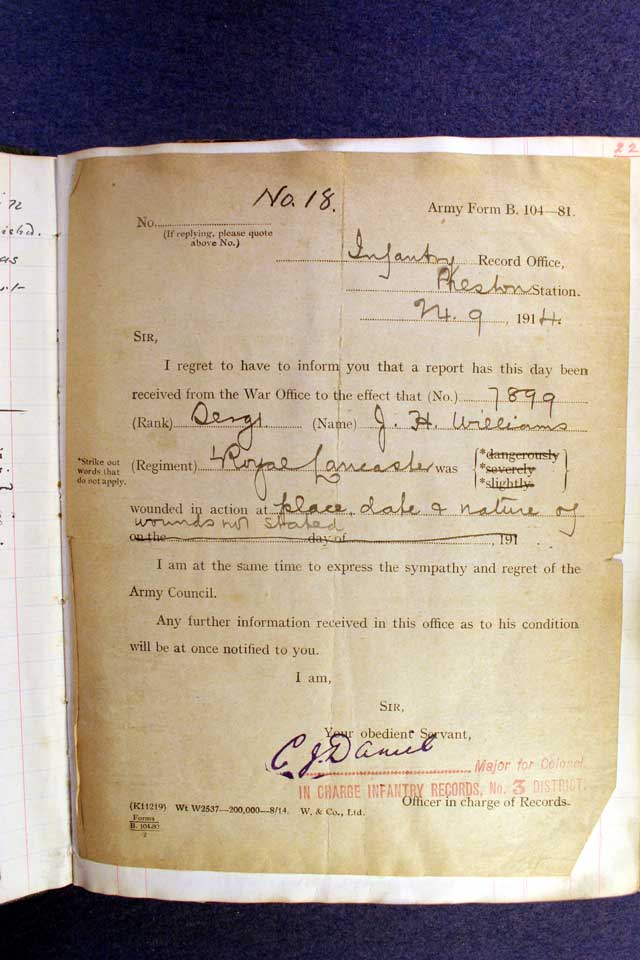 22
No. 18.
Army Form B. 104—81.
No.
(If replying, please quote
above No.)
Infantry Record Office,
Preston Station.
24. 9, 1914.
SIR,
I regret to have to inform you that a report has this day been
received from the War Office to the effect that (No.) 7899
(Rank) Sergt. (Name) J. H. Williams
(Regiment) Royal Lancaster was
*dangerously
*severely
*slightly
*Strike out
words that
do not apply.
wounded in action at place, date & nature of
wounds not stated
on the day of , 191 .
I am at the same time to express the sympathy and regret of the
Army Council.
Any further information received in this office as to his condition
will be at once notified to you.
I am,
SIR,
Your obedient Servant,
C J Daniel
Major for Colonel.
IN CHARGE INFANTRY RECORDS, No. 3 DISTRICT.
Officer in charge of Records.
(K11219) Wt W2537—200,000—8/14. W. & Co., Ltd.
Forms
B. 104-81
2